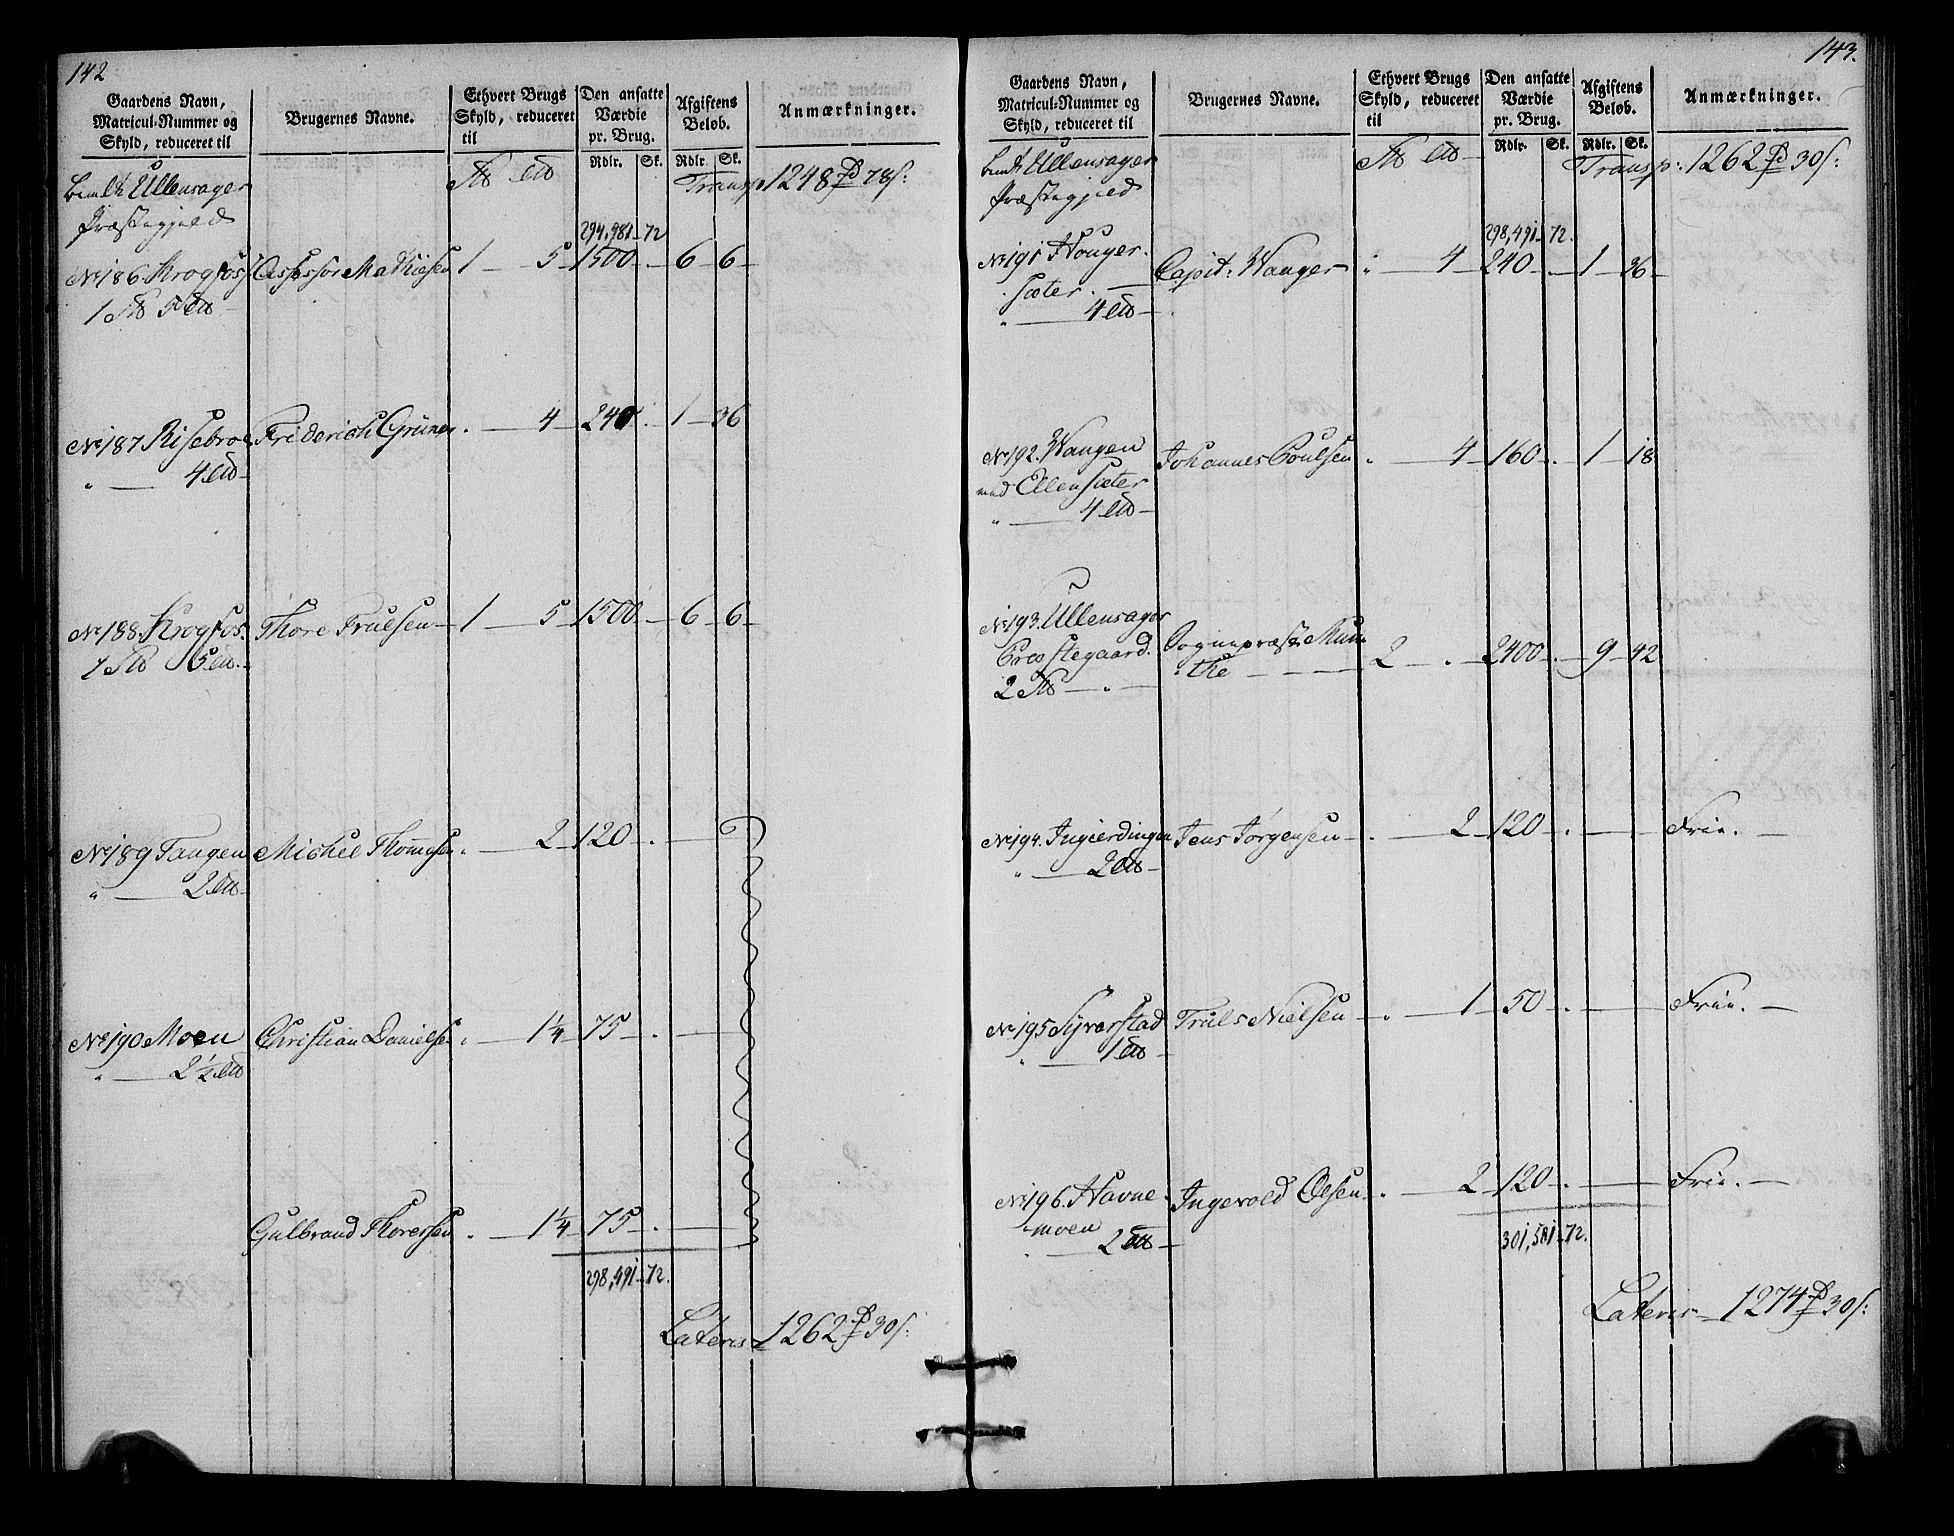 142
Gaardens Navn, Matricul-Nummer og Skyld, reduceret til
Brugernes Navne.
Ethvert Brugs Skyld, reduceret til
Den ansatte Værdie pr. Brug.
Afgiftens Beløb.
Anmærkninger.
Rdlr. Sk. Rdlr. Sk.
Ullensager Præstegjeld
Transp. 1248 78 s:
294,981 - 72
No 186. Krogfos Assessor Mathiesen 1 - 5 - 1500 - . - 6 - 6 -
1 5
No 187 Risebroe Friderich Grüner . - 4 - 240 . - 1 - 36
" - 4
No 188. Krogfos. Thore Trulsen - 1 - 5 - 1500 - . - 6 - 6 -
1 5
No 189 Tangen Michel Thomesen . - 2 - 120 - . -
" - 2
No 190 Moen Christian Danielsen . - 1¼ - 75 - . -
" - 2½
Gulbrand Thoresen . - 1¼ - 75 - . -
298,491 - 72.
Lateris - 1262 30 s:
143.
Gaardens Navn, Matricul-Nummer og Skyld, reduceret til
Brugernes Navne.
Ethvert Brugs Skyld, reduceret til
Den ansatte Værdie pr. Brug.
Afgiftens Beløb.
Anmærkninger.
Rdlr. Sk. Rdlr. Sk.
Ullensager Præstegjeld
Transp: 1262 30 s:
298,491 - 72.
No 191 Houger- Capit: Wanger " - 4 - 240 - . - 1 - 36 -
sæter. -
" - 4
No 192. Wangen Johannes Poulsen " - 4 - 160 - . - 1 - 18
med Ellensæter
" - 4
No 193. Ullensager Sognepræst Mun-
Præstegaard. the - 2 - . - 2400 - . - 9 - 42
2 - " -
No 194. Ingierdingen Jens Jørgensen - . - 2 - 120 - . - Frie. -
" - 2
No 195 Syverstad Truls Nielsen - . - 1 - 50 - . - Frie. -
" - 1
No 196. Havne- Ingevold Olsen - . - 2 - 120 - . - Frie. -
moen
2
301,581 - 72.
Lateris - 1274 30 s: